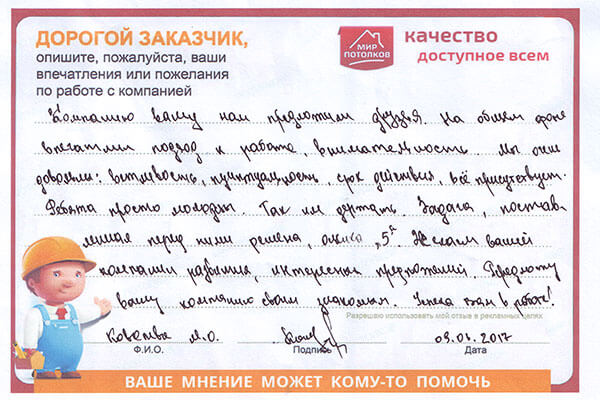 ДОРОГОЙ ЗАКАЗЧИК,
опишите, пожалуйста, ваши
впечатления или пожелания
по работе с компанией
МИР
ПОТОЛКОВ
качество
доступное всем
Компанию вашу нам предложили друзья. На общем фоне
впечатлил подход к работе, внимательность. Мы очень
довольны: вежливость, пунктуальность, срок действия, всё присутствует.
Ребята просто молодцы. Так им держать. Задача, постав-
ленная перед ними решена, оценка „5“. Желаем вашей
компании развития, интересных предложений. Предложу
вашу компанию своим знакомым. Успехов вам в работе!
Разрешаю использовать мой отзыв в рекламных целях
М.О. 09.06.2017
Ф.И.О. Подпись Дата
ВАШЕ МНЕНИЕ МОЖЕТ КОМУ-ТО ПОМОЧЬ